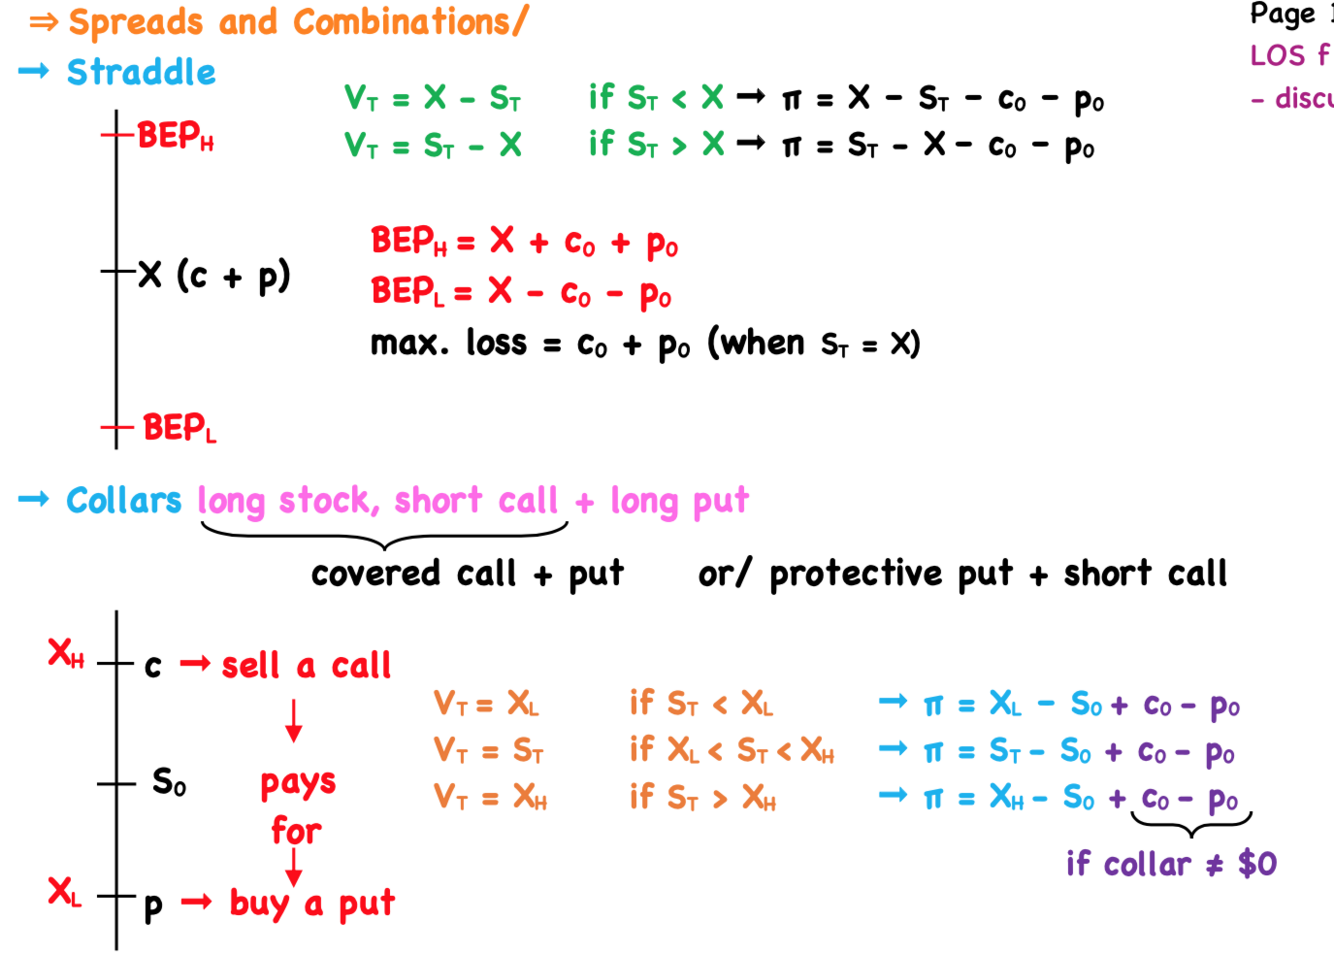 ⇒ Spreads and Combinations/
Page 1
→ Straddle
LOS f
- discu
V_T = X - S_T if S_T < X → π = X - S_T - c_0 - p_0
V_T = S_T - X if S_T > X → π = S_T - X - c_0 - p_0
BEP_H
BEP_H = X + c_0 + p_0
X (c + p)
BEP_L = X - c_0 - p_0
max. loss = c_0 + p_0 (when S_T = X)
BEP_L
→ Collars long stock, short call + long put
covered call + put or/ protective put + short call
X_H c → sell a call
V_T = X_L if S_T < X_L → π = X_L - S_0 + c_0 - p_0
V_T = S_T if X_L < S_T < X_H → π = S_T - S_0 + c_0 - p_0
V_T = X_H if S_T > X_H → π = X_H - S_0 + c_0 - p_0
S_0 pays
for
if collar ≠ $0
X_L p → buy a put